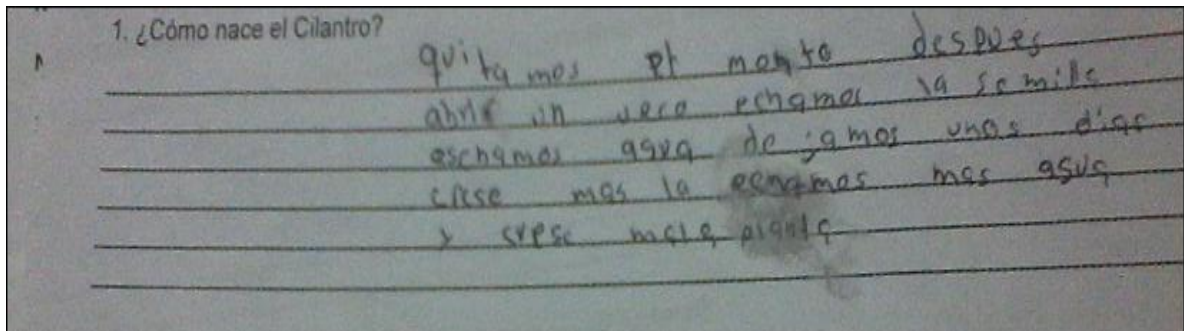 1. ¿Cómo nace el Cilantro?
quitamos el monto despues
abrir un ueco echamos la semila
eschamos agua dejamos unos dias
crese mas la echamos mas agua
y crese mas la planta